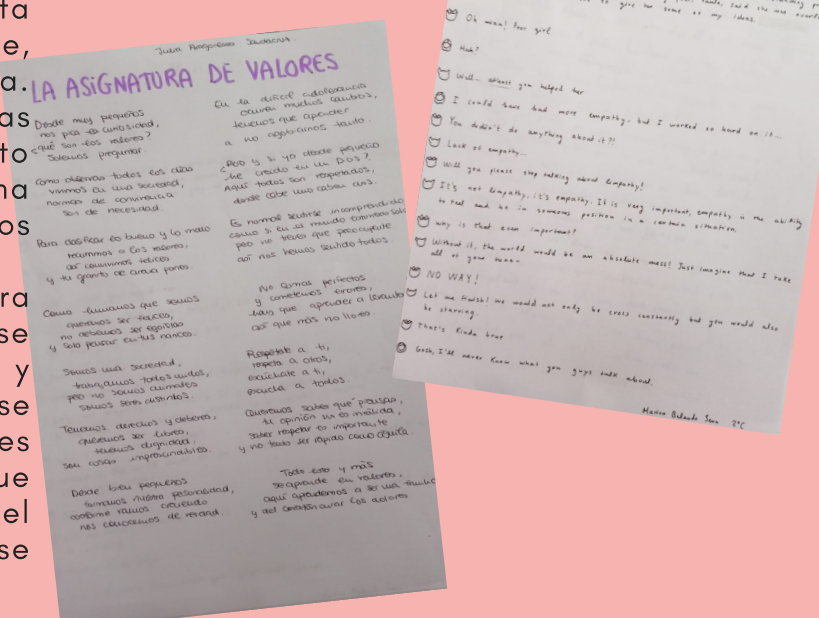 ta
e,
a.
as
to
na
os
ra
se
y
se
es
ue
el
se
Julia
LA ASIGNATURA DE VALORES
Desde muy pequeños
nos pica la curiosidad,
¿qué son los valores?
Solemos preguntar.
Como observas todos los días
vivimos en una sociedad,
normas de convivencia
son de necesidad.
Para clasificar lo bueno y lo malo
recurrimos a los valores,
así convivimos felices
y tu granito de arena pones.
Como humanos que somos
queremos ser felices,
no debemos ser egoístas
y solo pensar en tus narices.
Somos una sociedad,
trabajamos todos unidos,
pero no somos animales
somos seres distintos.
Tenemos derechos y deberes,
queremos ser libres,
tenemos dignidad,
son cosas imprescindibles.
Desde bien pequeños
formamos nuestra personalidad,
conforme vamos creciendo
nos conocemos de verdad.
En la difícil adolescencia
ocurren muchos cambios,
tenemos que aprender
a no agobiarnos tanto.
¿Pero y si yo desde pequeño
he creído en un Dios?
Aquí todos son respetados,
donde cabe uno caben dos.
Es normal sentirse incomprendido
como si en el mundo
pero no tienes que preocuparte
así nos hemos sentido todos.
No somos perfectos
y cometemos errores,
hay que aprender a
así que más no llores.
Respétate a ti,
respeta a otros,
escúchate a ti,
escucha a todos.
Queremos saber qué piensas,
tu opinión no es inválida,
saber respetar es importante
y no tanto ser rápido como águila.
Todo esto y más
se aprende en valores,
aquí aprendemos a ser una
y del corazón curar los dolores
said she was
to give her some of my ideas.
Oh man! Poor girl
Huh?
Well... atleast you helped her
I could have had more empathy, but I worked so hard on it...
You didn't do anything about it?!
Lack of empathy...
Will you please stop talking about limpathy!
It's not limpathy, it's empathy. It is very important, empathy is the ability
to feel and be in someones position in a certain situation.
why is that even important?
Without it, the world would be an absolute mess! Just imagine that I take
all of your tuna-
NO WAY!
Let me finish! we would not only be cross constantly but you would also
be starving.
That's kinda true
Gosh, I'll never know what you guys talk about.
2ºC